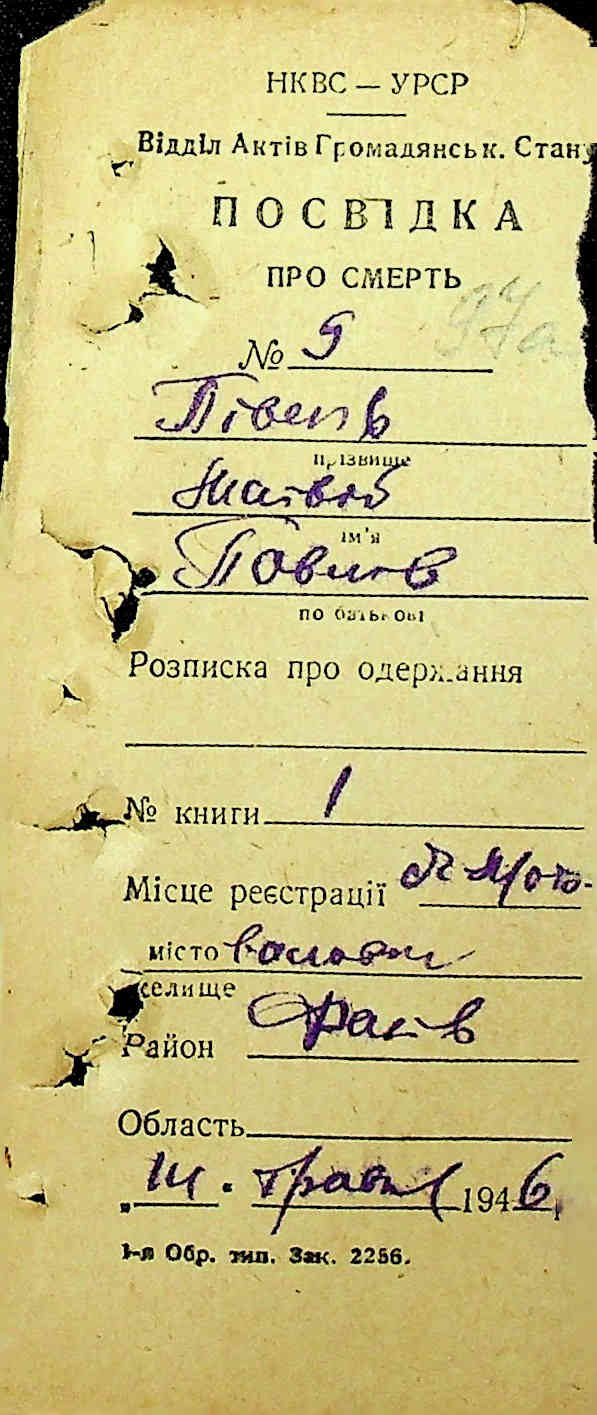 НКВС — УРСР
Відділ Актів Громадянськ. Стану
ПОСВІДКА
ПРО СМЕРТЬ
97а
№ 9
Півень
прізвище
Матвій
ім'я
Павлов
по батькові
Розписка про одержання
№ книги 1
Місце реєстрації
місто
селище
Район
Область
" III. травня 1946 р
1-я Обр. тип. Зак. 2256.